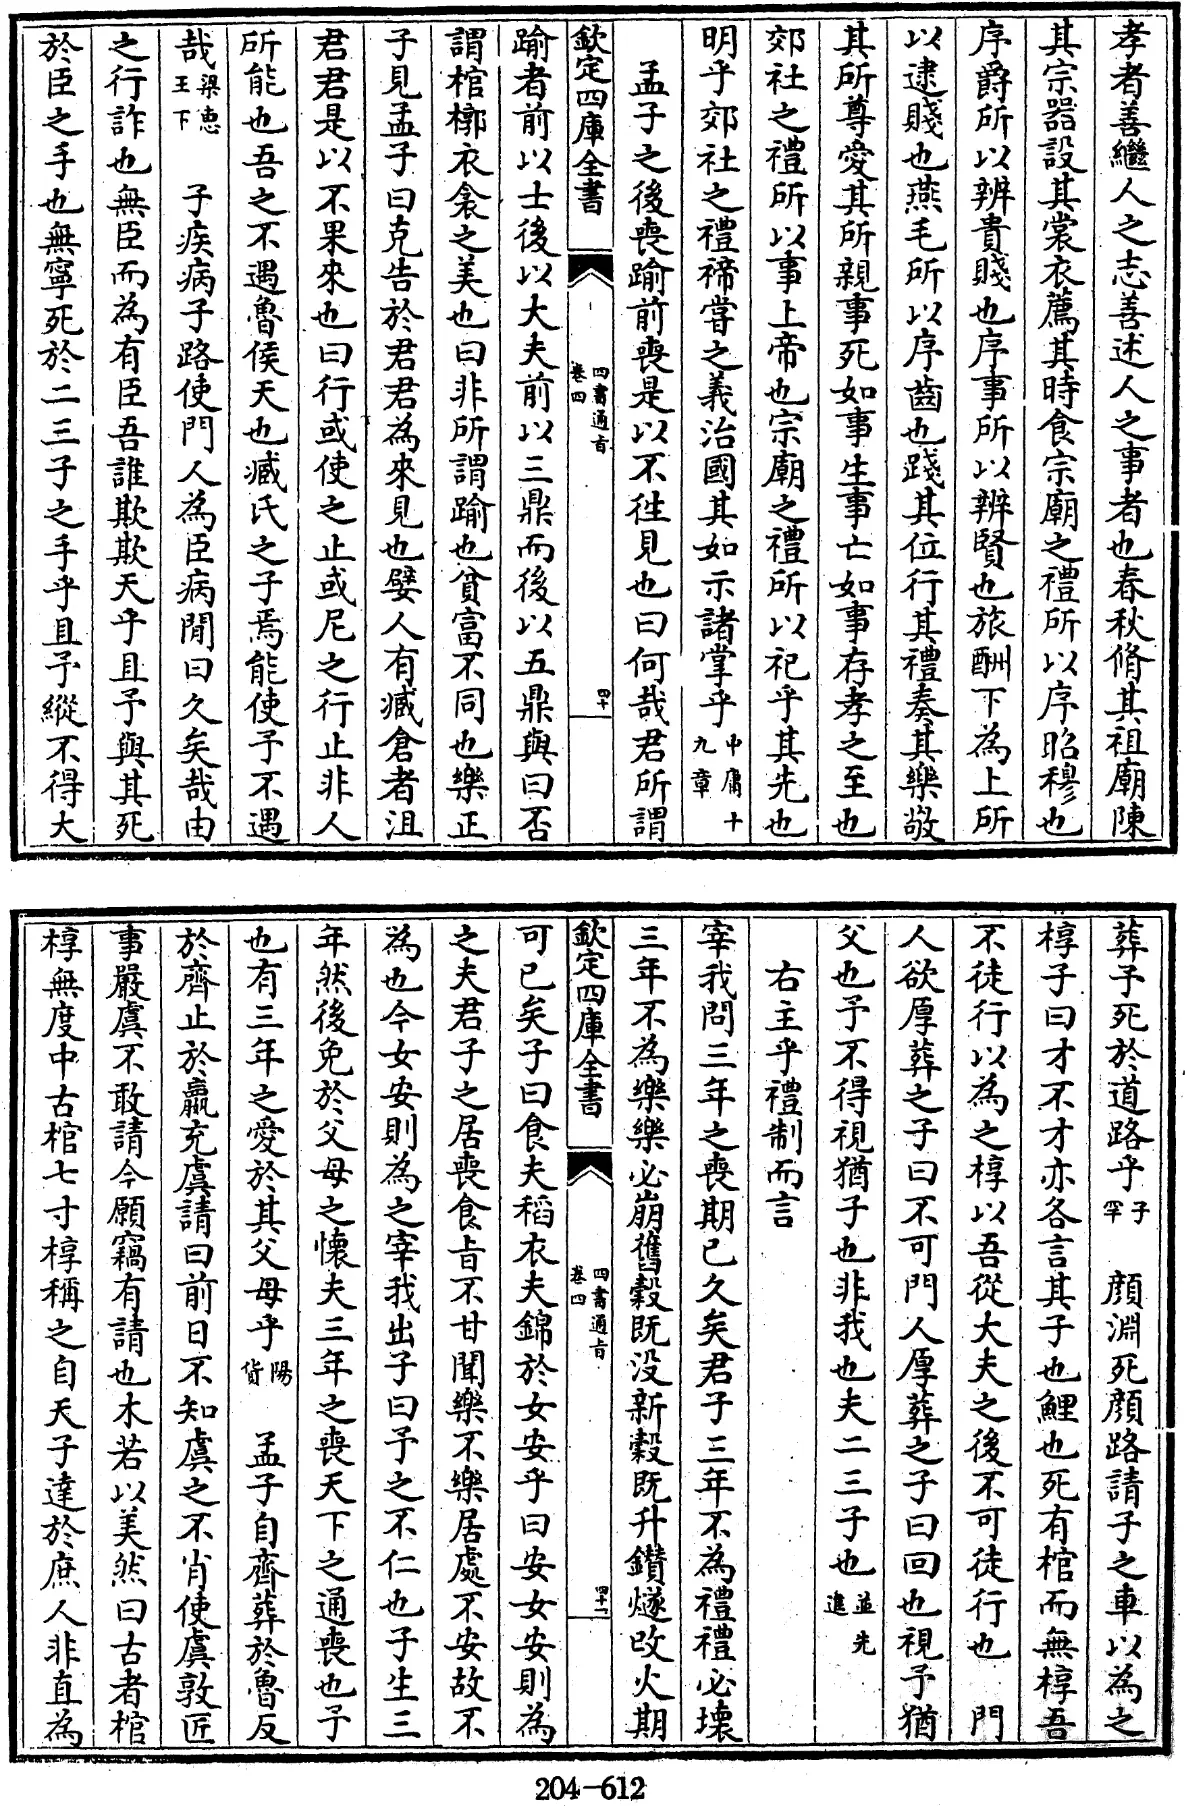 孝者善繼人之志善述人之事者也春秋脩其祖廟陳
其宗器設其裳衣薦其時食宗廟之禮所以序昭穆也
序爵所以辨貴賤也序事所以辨賢也旅酬下為上所
以逮賤也燕毛所以序齒也踐其位行其禮奏其樂敬
其所尊愛其所親事死如事生事亡如事存孝之至也
郊社之禮所以事上帝也宗廟之禮所以祀乎其先也
明乎郊社之禮禘嘗之義治國其如示諸掌乎中庸十九章
孟子之後喪踰前喪是以不徃見也曰何哉君所謂
欽定四庫全書 四書通旨卷四 四十
踰者前以士後以大夫前以三鼎而後以五鼎與曰否
謂棺槨衣衾之美也曰非所謂踰也貧富不同也樂正
子見孟子曰克告於君君為來見也嬖人有臧倉者沮
君君是以不果來也曰行或使之止或尼之行止非人
所能也吾之不遇魯侯天也臧氏之子焉能使予不遇
哉梁惠王下 子疾病子路使門人為臣病間曰久矣哉由
之行詐也無臣而為有臣吾誰欺欺天乎且予與其死
於臣之手也無寧死於二三子之手乎且予縱不得大
葬予死於道路乎子罕 顔淵死顔路請子之車以為之
椁子曰才不才亦各言其子也鯉也死有棺而無椁吾
不徒行以為之椁以吾從大夫之後不可徒行也 門
人欲厚葬之子曰不可門人厚葬之子曰回也視予猶
父也予不得視猶子也非我也夫二三子也並先進
右主乎禮制而言
宰我問三年之喪期已久矣君子三年不為禮禮必壞
三年不為樂樂必崩舊穀既没新穀既升鑚燧改火期
欽定四庫全書 四書通旨卷四 四十一
可已矣子曰食夫稻衣夫錦於女安乎曰安女安則為
之夫君子之居喪食旨不甘聞樂不樂居處不安故不
為也今女安則為之宰我出子曰予之不仁也子生三
年然後免於父母之懷夫三年之喪天下之通喪也予
也有三年之愛於其父母乎陽貨 孟子自齊葬於魯反
於齊止於嬴充虞請曰前日不知虞之不肖使虞敦匠
事嚴虞不敢請今願竊有請也木若以美然曰古者棺
椁無度中古棺七寸椁稱之自天子達於庶人非直為
204-612